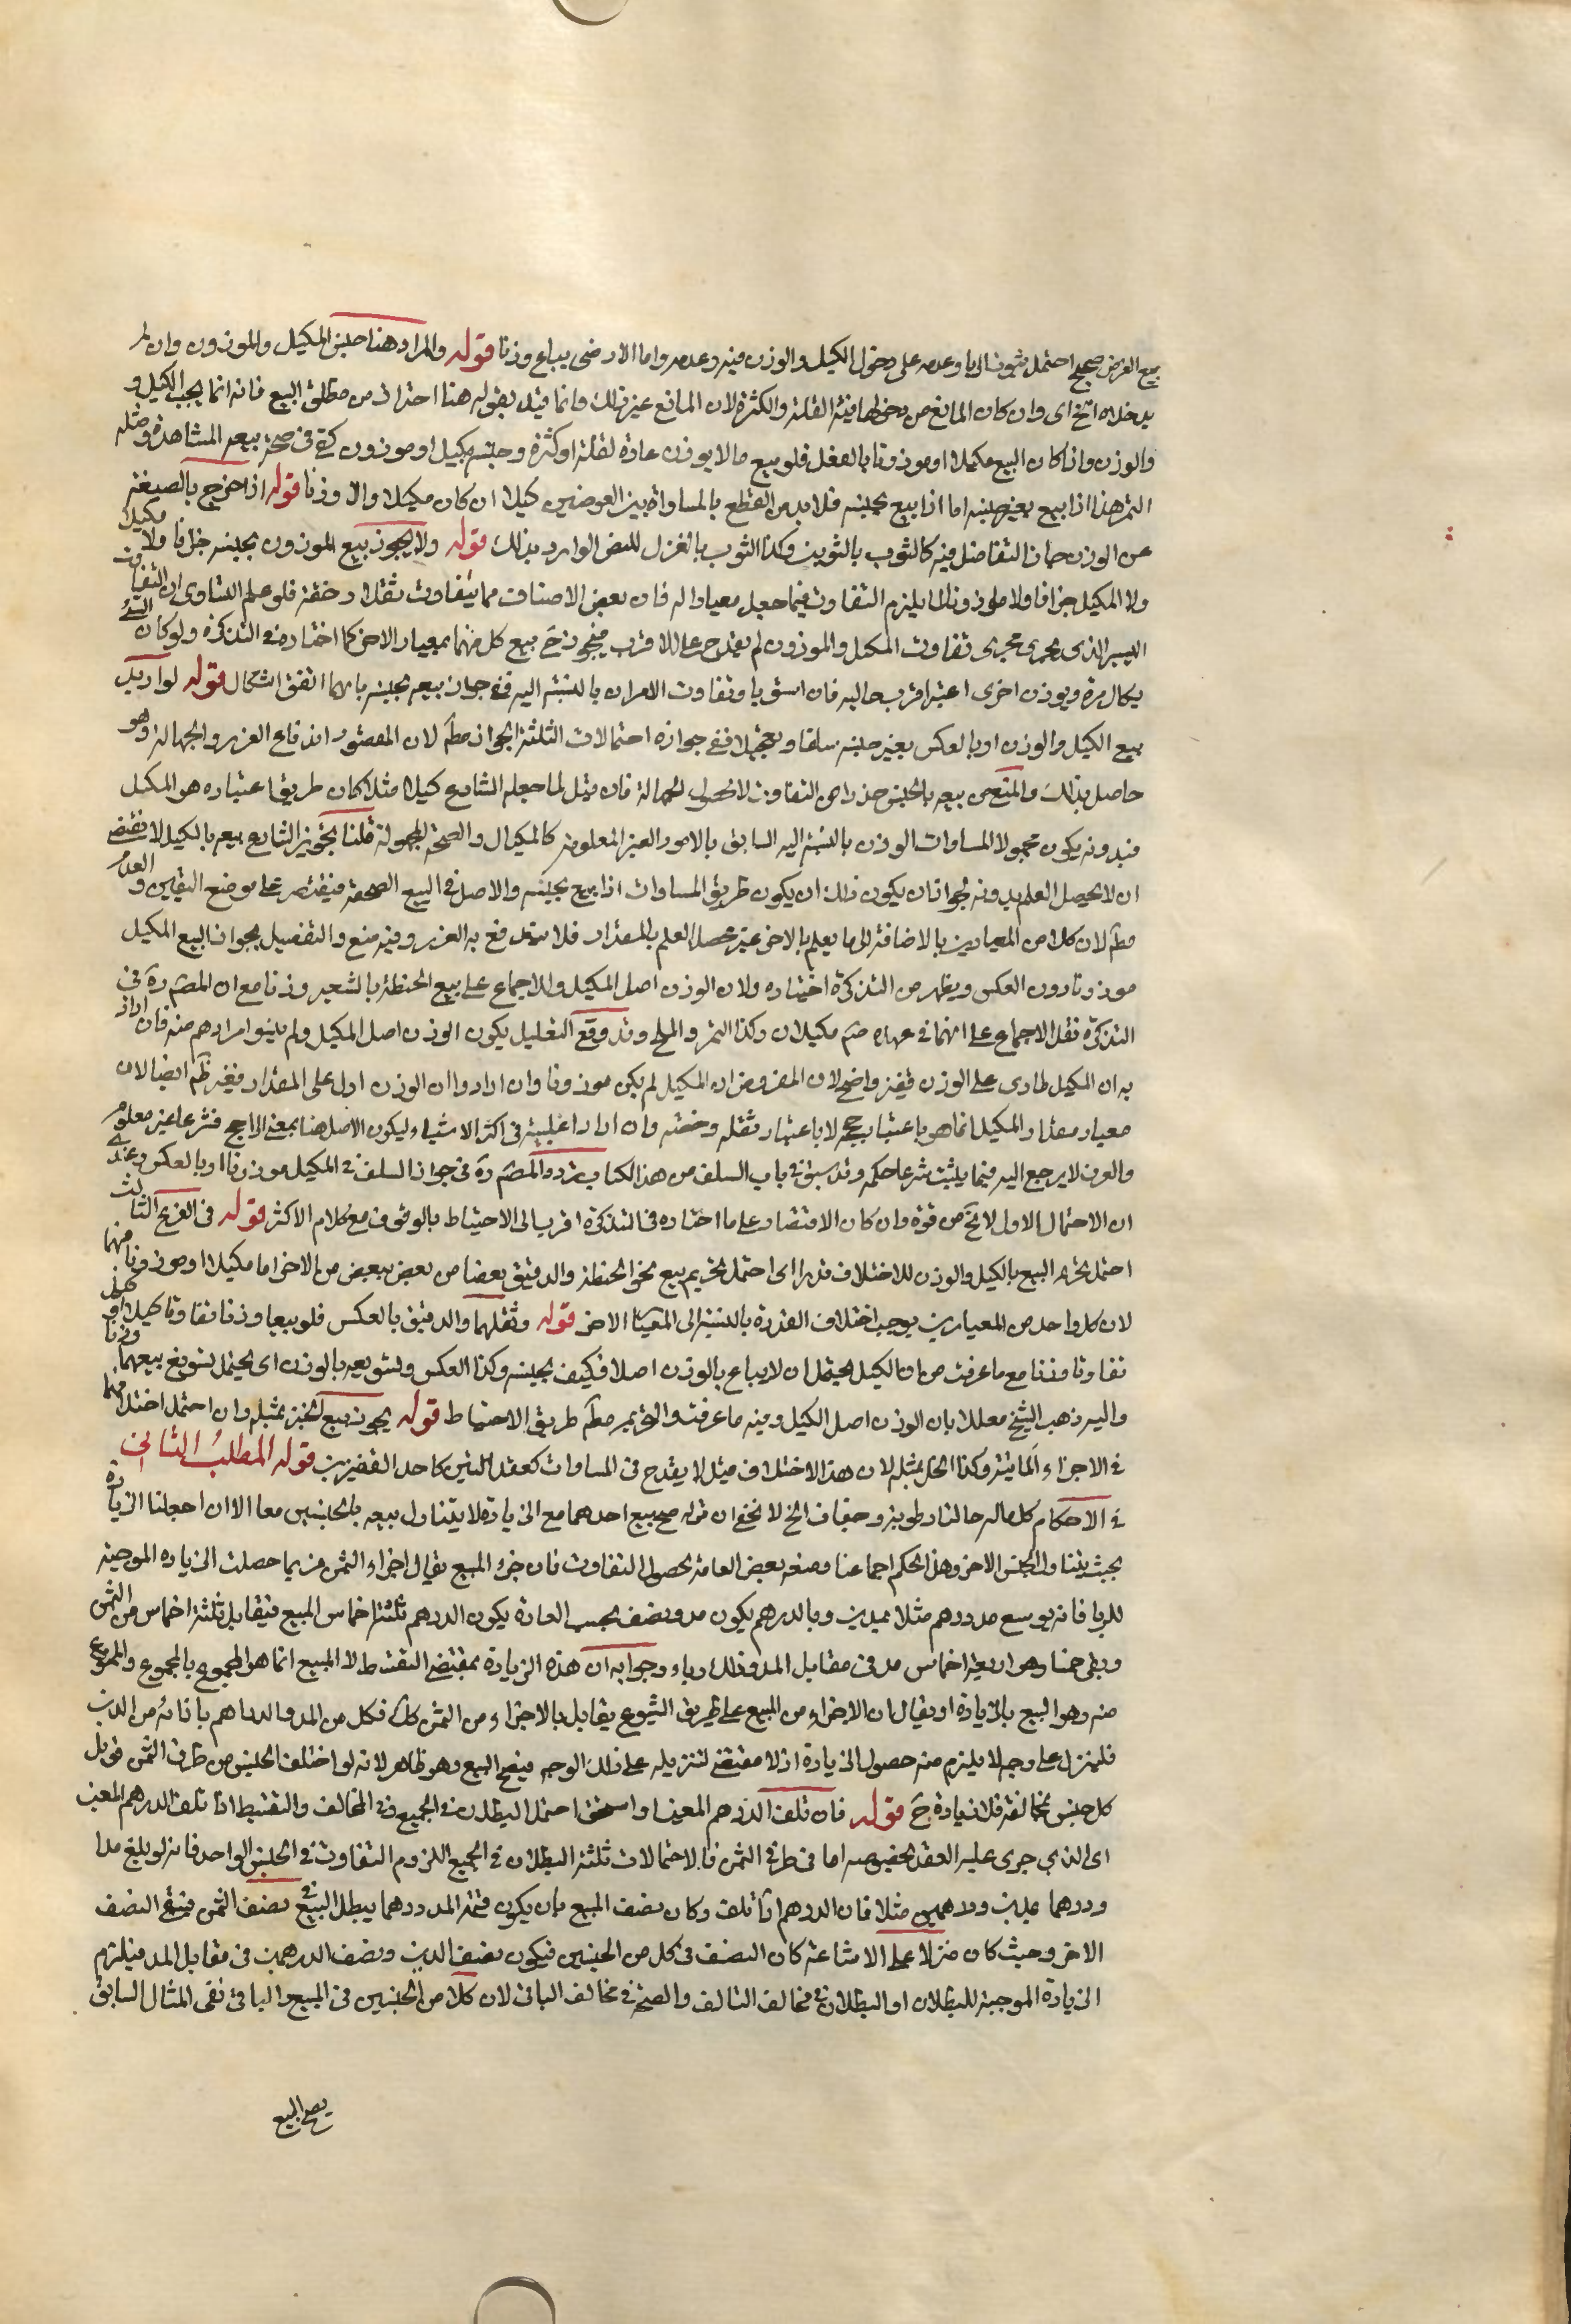 بيع الغرض صحيح احتمل ثبوت الربا وعدمه على دخول الكيل والوزن فيه وعدمه واما الارضى يباع وزنا قوله والمراد هنا جنس المكيل والموزون وان لم
يدخلاه الخ اى وان كان المانع من دخولهما فيه القلة والكثرة لان المانع غير ذلك وانما قيد بقوله هنا احتراز من مطلق البيع فانه انما يجب الكيل و
والوزن واذا كان البيع مكيلا او موزونا بالفعل فلو بيع ما لا يوزن عادة لقلة او كثرة وجنسه مكيل او موزون كفى فى صحة بيعه المشاهدة ومثله
التمر هذا اذا بيع بغير جنسه اما اذا بيع بجنسه فلا بد من القطع بالمساواة بين العوضين كيلا ان كان مكيلا والا وزنا قوله اذا خرج بالصيغة
عن الوزن جاز التفاضل فيه كالثوب بالثوبين وكذا الثوب بالغزل للنص الوارد بذلك قوله ولا يجوز بيع الموزون بجنسه جزافا ولا مكيلا
ولا المكيل جزافا ولا موزونا لئلا يلزم التفاوت فيما جعل معيارا له فان بعض الاصناف مما يتفاوت ثقلا وخفة فلو علم التساوى او التفاوت
اليسير الذى يجرى مجرى تفاوت المكيل والموزون لم يقدح على الاقرب فيجوز ح بيع كل منهما بمعيار الاخر كما اختاره فى التذكرة ولو كان الشئ
يكال مرة ويوزن اخرى اعتبر اقرب حاليه فان استويا وتفاوت الامران بالنسبة اليه ففى جواز بيعه بجنسه بايهما اتفق اشكال قوله لو اريد
بيع الكيل والوزن او بالعكس بغير جنسه سلفا وتعجيلا ففى جوازه احتمالات الثلثة الجواز مطم لان المقصود اندفاع الغرر والجهالة وهو
حاصل بذلك والمنع من بيعه بالجنس حذرا من التفاوت لا لحصول الجهالة فان قيل لما جعله الشارع كيلا مثلا كان طريق اعتباره هو المكيل
فبدونه يكون مجهولا لمساوات الوزن بالنسبة اليه السابق بالامور الغير المعلومة كالمكيال والصنجة المجهولة قلنا تجويز الشارع بيعه بالكيل لا يقتضى
ان لا يحصل العلم بدونه لجواز ان يكون ذلك ان يكون طريق المساوات اذا بيع بجنسه والاصل فى البيع الصحة فيقتصر على موضع اليقين والعدم
مطم لان كلا من المعيارين بالاضافة الى ما يعلم بالاخر غير محصل العلم بالمقدار فلا يندفع به الغرر وفيه منع والتفصيل بجواز البيع المكيل
موزونا دون العكس ويظهر من التذكرة اختياره ولان الوزن اصل المكيل وللاجماع على بيع الحنطة بالشعير وزنا مع ان المصم ره فى
التذكرة نقل الاجماع على انهما فى عهده صم مكيلان وكذا التمر والملح وقد وقع التعليل بكون الوزن اصل المكيل ولم يبينوا مرادهم منه فان اراد
به ان المكيل طارى على الوزن فغير واضح لان المفروض ان المكيل لم يكن موزونا وان ارادوا ان الوزن ادل على المقدار ففيه نظم ايضا لان
معيار مقدار المكيل انما هو باعتبار حجمه لا باعتبار ثقله وخفته وان اراد اغلبيته فى اكثر الاشياء وليكون الاصل هنا بمعنى الراجح فشرعا غير معلوم
والعرف لا يرجع اليه فيما يثبت شرعا حكمه وقد سبق فى باب السلف من هذا الكتاب تردد المصم ره فى جواز السلف فى المكيل موزونا او بالعكس وعندى
ان الاحتمال الاول لا يخ من قوة وان كان الاقتصار على ما اختاره فى التذكرة اقرب الى الاحتياط بالوقوف مع كلام الاكثر قوله فى الفرع الثالث
احتمل تحريم البيع بالكيل والوزن للاختلاف قدرا اى احتمل تحريم بيع نحو الحنطة والدقيق بعضا من بعض ببعض من الاخر اما مكيلا او موزونا منهما
لان كل واحد من المعيارين يوجب اختلاف القدرة بالنسبة الى المعيار الاخر قوله وثقلهما والدقيق بالعكس فلو بيعا وزنا تفاوتا كيلا او كيلا
تفاوتا وزنا مع ما عرفت من ان الكيل يحتمل ان لا يباع بالوزن اصلا فكيف بجنسه وكذا العكس وتسويغه بالوزن اى يحتمل تسويغ بيعهما وزنا
واليه ذهب الشيخ معللا بان الوزن اصل الكيل وفيه ما عرفت والتحريم مطم طريق الاحتياط قوله يجوز بيع الخبز بمثله وان احتمل اختلافهما
فى الاجزاء المائية وكذا الخل بمثله لان هذا الاختلاف مثل لا يقدح فى المساوات كعقد التبن كاحد القفيزين قوله المطلب الثانى
فى الاحكام كل ما له حالتا رطوبة وجفاف الخ لا يخفى ان قوله صح بيع احدهما مع الزيادة لا يتناول بيعه بالجنسين معا الا ان احعلنا الزيادة
بحيث يتناول الجنس الاخر وهذا الحكم اجماعنا ومنعه بعض العامة لحصول التفاوت فان جزء المبيع يقابل اجزاء الثمن فربما حصلت الزيادة الموجبة
للربا فانه لو بيع مد ودرهم مثلا بمدين وبالدرهم يكون مد ونصف بحسب العادة يكون الدرهم ثلثة اخماس المبيع فيقابل ثلثة اخماس من الثمن
وبقى خمسا وهو اربعة اخماس مد فى مقابل المد وذلك رباء وجوابه ان هذه الزيادة بمقتضى التقسيط لا المبيع انما هو المجموع بالمجموع والممنوع
منه وهو البيع بالزيادة او يقال ان الاجزاء من المبيع على طريق الشيوع يقابل بالاجزاء من الثمن كل فكل من المد والدراهم بازائه من الدين
فلينزل على وجه لا يلزم منه حصول الزيادة اذ لا مقتضى لتنزيله على ذلك الوجه فيصح البيع وهو ظاهر لانه لو اختلف الجنس من طرف الثمن قوبل
كل جنس بمخالفه فلا زيادة ح قوله فان تلف الدرهم المعين او استحق احتمل البطلان فى الجميع وفى المخالف والتقسيط اذا تلف الدرهم المعين
اى الذى جرى عليه العقد بخصوصه اما فى طرفى الثمن فالاحتمالات ثلثة البطلان فى الجميع اللزوم التفاوت فى الجنس الواحد فانه لو بلغ مدا
ودرهما بمدين ودرهمين مثلا فان الدرهم اذا تلف وكان نصف المبيع بان يكون قيمة المد درهما يبطل البيع فى نصف الثمن فيبقى النصف
الاخر وحيث كان منزلا على الاشاعة كان النصف فى كل من الجنسين فيكون نصف الدين ونصف الدرهمين فى مقابل المد فيلزم
الزيادة الموجبة للبطلان او البطلان فى مخالف التالف والصحة فى مخالف الباقى لان كلا من الجنسين فى المبيع الباقى نفى المثال السابق
يصح البيع